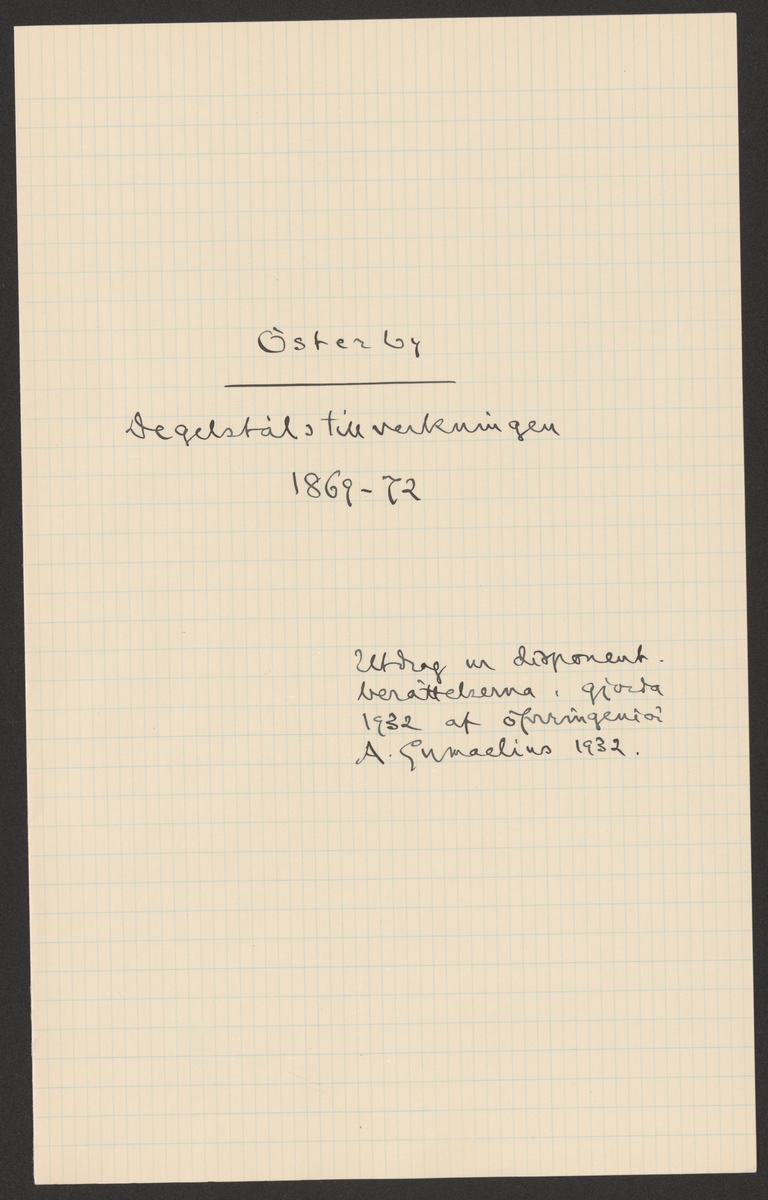 Österby
Degelståls tillverkningen
1869-72
Utdrag ur disponent-
berättelserna, gjorda
1932 af öfveringeniör
A. Gumaelius 1932.